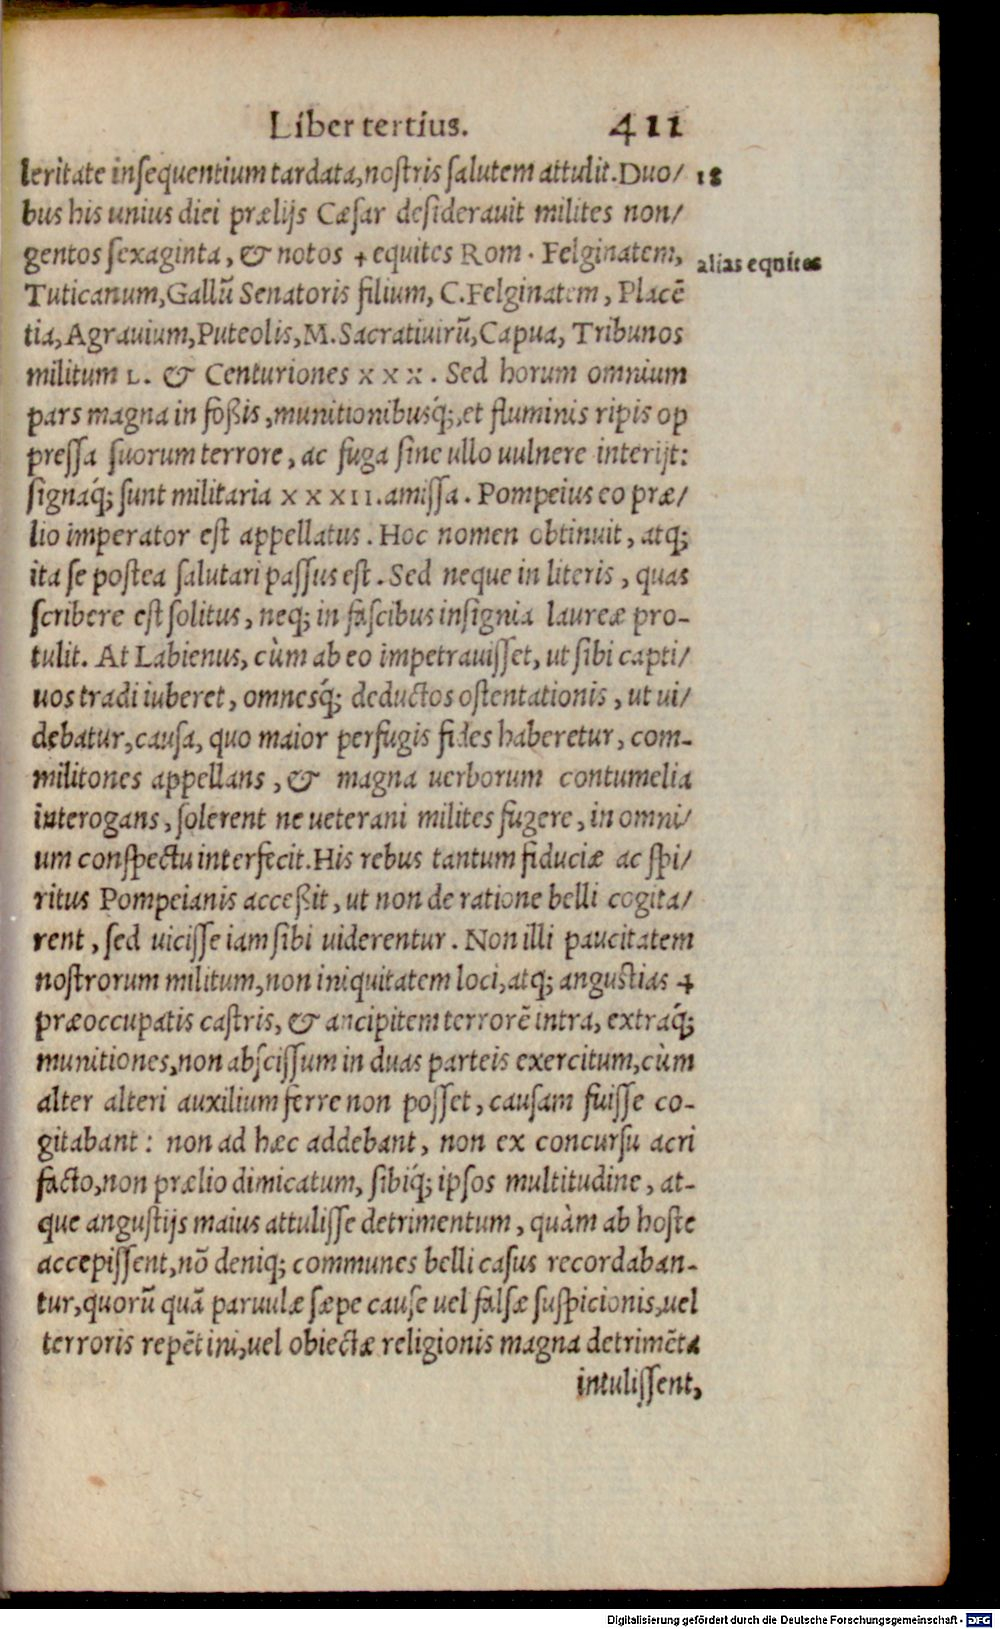 Liber tertius. 411
leritate insequentium tardata, nostris salutem attulit. Duo/ 18
bus his unius diei prælijs Cæsar desideravit milites non/
gentos sexaginta, & notos + equites Rom. Felginatem, alias equites
Tuticanum, Gallū Senatoris filium, C. Felginatem, Placē
tia, Agravium, Puteolis, M. Sacrativirū, Capua, Tribunos
militum L. & Centuriones XXX. Sed horum omnium
pars magna in foßis, munitionibusq́;, et fluminis ripis op
pressa suorum terrore, ac fuga sine ullo vulnere interijt:
signaq́; sunt militaria XXXII. amissa. Pompeius eo præ/
lio imperator est appellatus. Hoc nomen obtinuit, atq;
ita se postea salutari passus est. Sed neque in literis, quas
scribere est solitus, neq; in fascibus insignia laureæ pro-
tulit. At Labienus, cùm ab eo impetrauisset, ut sibi capti/
uos tradi iuberet, omnesq́; deductos ostentationis, ut ui/
debatur, causa, quo maior perfugis fides haberetur, com-
militones appellans, & magna uerborum contumelia
interogans, solerent ne ueterani milites fugere, in omni/
um conspectu interfecit. His rebus tantum fiduciæ ac spi/
ritus Pompeianis acceßit, ut non de ratione belli cogita/
rent, sed uicisse iam sibi uiderentur. Non illi paucitatem
nostrorum militum, non iniquitatem loci, atq; angustias +
præoccupatis castris, & ancipitem terrorē intra, extraq́;
munitiones, non abscissum in duas parteis exercitum, cùm
alter alteri auxilium ferre non posset, causam fuisse co-
gitabant: non ad hæc addebant, non ex concursu acri
facto, non prælio dimicatum, sibiq́; ipsos multitudine, at-
que angustijs maius attulisse detrimentum, quàm ab hoste
accepissent, nō deniq; communes belli casus recordaban-
tur, quorū quā paruulæ sæpe cause uel falsæ suspicionis, uel
terroris repētini, uel obiectæ religionis magna detrimēta
intulissent,
Digitalisierung gefördert durch die Deutsche Forschungsgemeinschaft - DFG